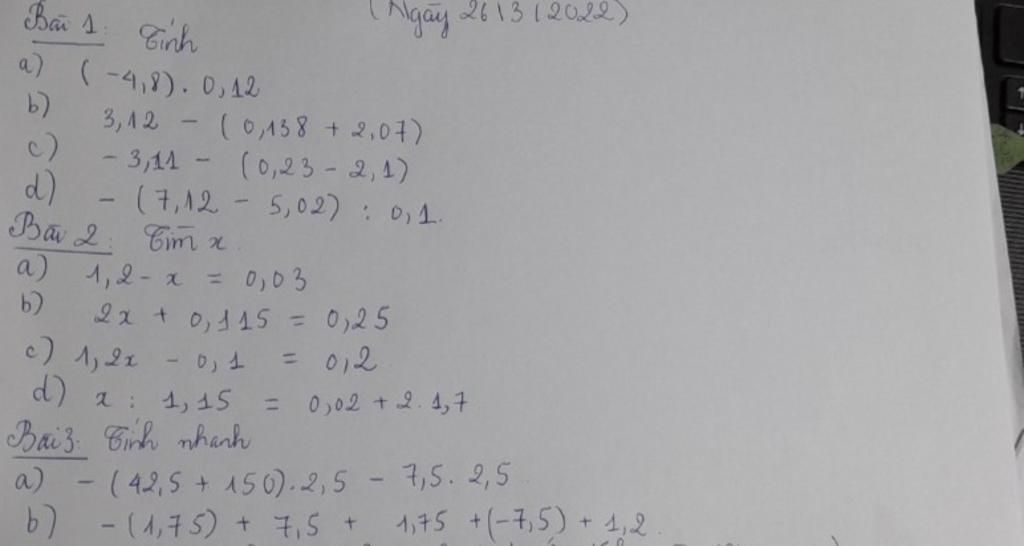 (Ngày 26/3/2022)
Bài 1: Tính
a) (-4,8). 0,12
b) 3,12 - (0,138 + 2,07)
c) - 3,11 - (0,23 - 2,1)
d) - (7,12 - 5,02) : 0,1.
Bài 2: Tìm x.
a) 1,2 - x = 0,03
b) 2x + 0,115 = 0,25
c) 1,2x - 0,1 = 0,2
d) x : 1,15 = 0,02 + 2. 1,7
Bài 3: Tính nhanh
a) - (42,5 + 150). 2,5 - 7,5. 2,5
b) - (1,75) + 7,5 + 1,75 + (-7,5) + 1,2.